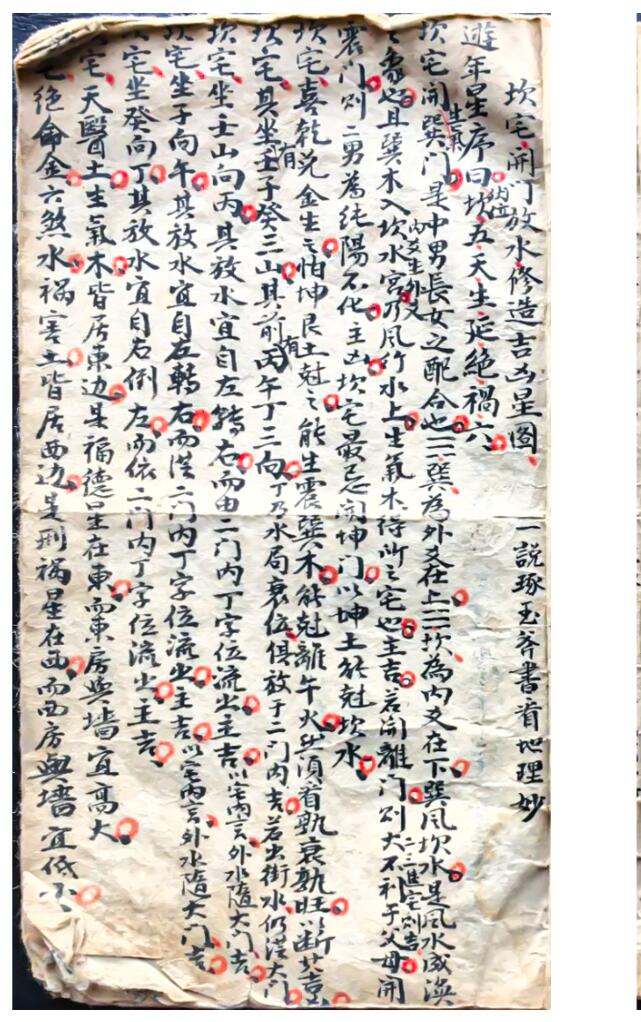 坎宅開門放水修造吉凶星圖　一說琢玉斧書看地理妙
遊年星序曰坎五天生延絕禍六
坎宅開巽門是中男長女之配合也三巽為外爻在上三坎為內爻在下巽風坎水是風水威渙
之象也且巽木入坎水宮乃風行水上生氣木得所之宅也主吉若開離門則大不利于父母開
震門則二男為純陽不化主凶坎宅最忌開坤門以坤土能尅坎水
坎宅喜乾兌金生之怕坤艮土尅之能生震巽木能尅離午火然須看孰衰孰旺以斷其吉凶
坎宅其坐壬子癸三山其前丙午丁三向丁乃水局衰位俱放于二門內吉若出街水仍從大門
坎宅坐壬山向丙其放水宜自左轉右而由二门内丁字位流出主吉以宅內言外水隨大门吉
坎宅坐子向午其放水宜自左轉右而從二门内丁字位流出主吉以宅內言外水隨大门吉
坎宅坐癸向丁其放水宜自右倒左而依二门内丁字位流出主吉
宅天醫土生氣木皆居東边是福德星在東而東房與墻宜高大
宅絕命金六煞水禍害土皆居西边是刑禍星在西而西房與墻宜低小